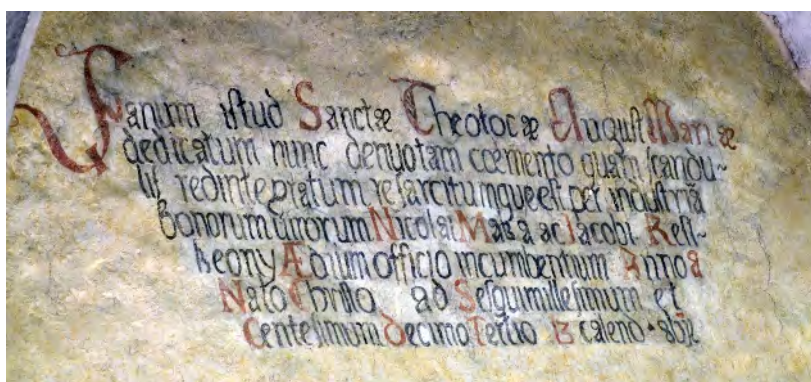 Fanum istud Sanctæ Theotocæ August Mariæ
dedicatum nunc denuo tam cœmento quam scandu-
lis redintegratum resarcitumque est per industriã
Bonorum uirorum Nicolai Masa ac Iacobi Rest-
Beony Ædium officio incumbentium Anno a
Nato Christo ad Sesquimillesimum et
Centesimum Decimo Tertio caleno